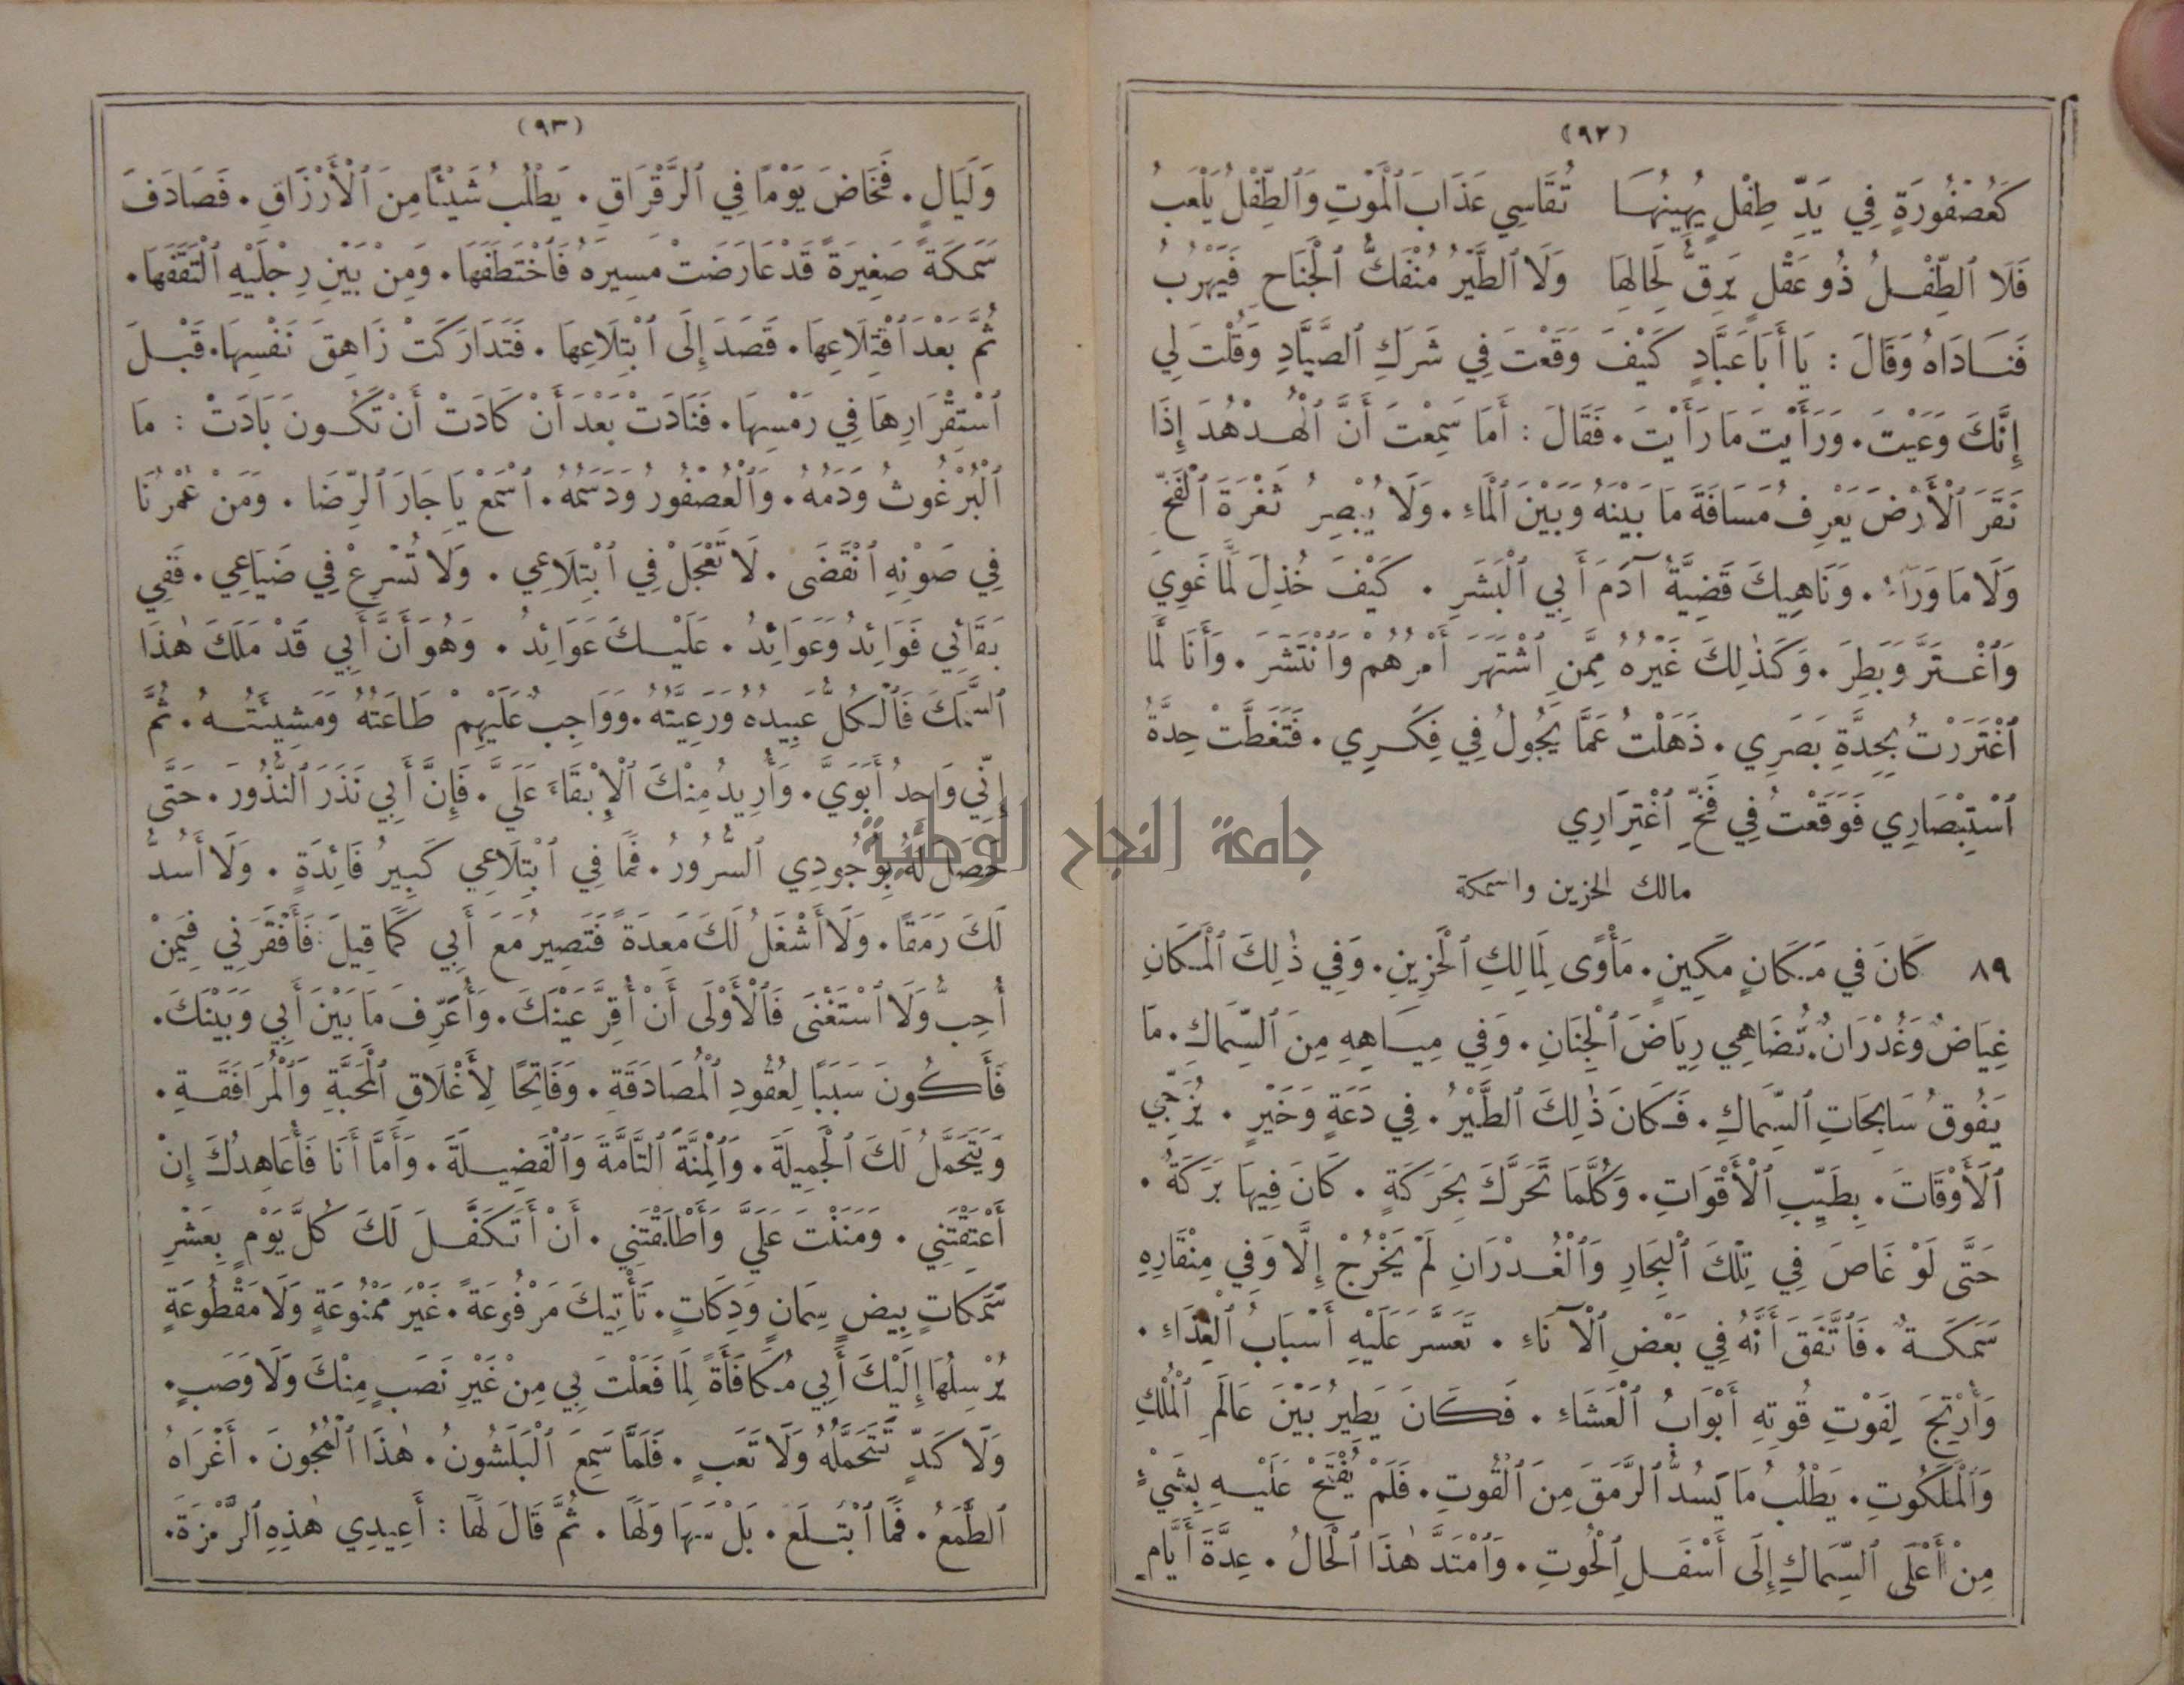 (٩٢)
كَعُصْفُورَةٍ فِي يَدِّ طِفْلٍ يُهِينُهَا تُقَاسِي عَذَابَ ٱلْمَوْتِ وَٱلطِّفْلُ يَلْعَبُ
فَلَا ٱلطِّفْلُ ذُو عَقْلٍ يَرِقُّ لِحَالِهَا وَلَا ٱلطَّيْرُ مُنْفَكُّ ٱلْجَنَاحِ فَيَهْرُبُ
فَنَادَاهُ وَقَالَ : يَا أَبَا عَبَّادٍ كَيْفَ وَقَعْتَ فِي شَرَكِ ٱلصَّيَّادِ وَقُلْتَ لِي
إِنَّكَ وَعَيْتَ . وَرَأَيْتَ مَا رَأَيْتَ . فَقَالَ : أَمَا سَمِعْتَ أَنَّ ٱلْهُدْهُدَ إِذَا
نَقَرَ ٱلْأَرْضَ يَعْرِفُ مَسَافَةَ مَا بَيْنَهُ وَبَيْنَ ٱلْمَاءِ . وَلَا يُبْصِرُ ثَغْرَةَ ٱلْفَخِّ
وَلَا مَا وَرَاءَ . وَنَاهِيكَ قَضِيَّةُ آدَمَ أَبِي ٱلْبَشَرِ . كَيْفَ خُذِلَ لَمَّا غَوِيَ
وَٱغْتَرَّ وَبَطِرَ . وَكَذٰلِكَ غَيْرُهُ مِمَّنِ ٱشْتَهَرَ أَمْرُهُمْ وَٱنْتَشَرَ . وَأَنَا لَمَّا
ٱغْتَرَرْتُ بِحِدَّةِ بَصَرِي . ذَهَلْتُ عَمَّا يَجُولُ فِي فِكَرِي . فَتَغَطَّتْ حِدَّةُ
ٱسْتِبْصَارِي فَوَقَعْتُ فِي فَخِّ ٱغْتِرَارِي
مالك الحزين والسمكة
٨٩ كَانَ فِي مَكَانٍ مَكِينٍ . مَأْوًى لِمَالِكِ ٱلْحَزِينِ . وَفِي ذٰلِكَ ٱلْمَكَانِ
غِيَاضٌ وَغُدْرَانٌ . تُضَاهِي رِيَاضَ ٱلْجِنَانِ . وَفِي مِيَاهِهِ مِنَ ٱلسِّمَاكِ . مَا
يَفُوقُ سَابِحَاتِ ٱلسِّمَاكِ . فَكَانَ ذٰلِكَ ٱلطَّيْرُ . فِي دَعَةٍ وَخَيْرٍ . يُزَجِّي
ٱلْأَوْقَاتَ . بِطَيِّبِ ٱلْأَقْوَاتِ . وَكُلَّمَا تَحَرَّكَ بِحَرَكَةٍ . كَانَ فِيهَا بَرَكَةٌ .
حَتَّى لَوْ غَاصَ فِي تِلْكَ ٱلْبِحَارِ وَٱلْغُدْرَانِ لَمْ يَخْرُجْ إِلَّا وَفِي مِنْقَارِهِ
سَمَكَةٌ . فَٱتَّفَقَ أَنَّهُ فِي بَعْضِ ٱلْآنَاءِ . تَعَسَّرَ عَلَيْهِ أَسْبَابُ ٱلْغِذَاءِ .
وَأُرْتِجَ لِفَوْتِ قُوتِهِ أَبْوَابُ ٱلْعَشَاءِ . فَكَانَ يَطِيرُ بَيْنَ عَالَمِ ٱلْمُلْكِ
وَٱلْمَلَكُوتِ . يَطْلُبُ مَا يَسُدُّ ٱلرَّمَقَ مِنَ ٱلْقُوتِ . فَلَمْ يُفْتَحْ عَلَيْهِ بِشَيْءٍ
مِنْ أَعْلَى ٱلسِّمَاكِ إِلَى أَسْفَلِ ٱلْحُوتِ . وَٱمْتَدَّ هٰذَا ٱلْحَالُ . عِدَّةَ أَيَّامٍ
(٩٣)
وَلَيَالٍ . فَخَاضَ يَوْمًا فِي ٱلرَّقْرَاقِ . يَطْلُبُ شَيْئًا مِنَ ٱلْأَرْزَاقِ . فَصَادَفَ
سَمَكَةً صَغِيرَةً قَدْ عَارَضَتْ مَسِيرَهُ فَٱخْتَطَفَهَا . وَمِنْ بَيْنِ رِجْلَيْهِ ٱلْتَقَفَهَا .
ثُمَّ بَعْدَ ٱقْتِلَاعِهَا . قَصَدَ إِلَى ٱبْتِلَاعِهَا . فَتَدَارَكَتْ زَاهِقَ نَفْسِهَا . قَبْلَ
ٱسْتِقْرَارِهَا فِي رَمْسِهَا . فَنَادَتْ بَعْدَ أَنْ كَادَتْ أَنْ تَكُونَ بَادَتْ : مَا
ٱلْبُرْغُوثُ وَدَمُهُ . وَٱلْعُصْفُورُ وَدَسَمُهُ . ٱسْمَعْ يَا جَارَ ٱلرِّضَا . وَمَنْ عُمْرُنَا
فِي صَوْنِهِ ٱنْقَضَى . لَا تَعْجَلْ فِي ٱبْتِلَاعِي . وَلَا تُسْرِعْ فِي ضَيَاعِي . فَفِي
بَقَائِي فَوَائِدُ وَعَوَائِدُ . عَلَيْكَ عَوَائِدُ . وَهُوَ أَنَّ أَبِي قَدْ مَلَكَ هٰذَا
ٱلسَّمَكَ فَٱلْكُلُّ عَبِيدُهُ وَرَعِيَّتُهُ . وَوَاجِبٌ عَلَيْهِمْ طَاعَتُهُ وَمَشِيئَتُهُ . ثُمَّ
إِنِّي وَاحِدُ أَبَوَيَّ . وَأُرِيدُ مِنْكَ ٱلْإِبْقَاءَ عَلَيَّ . فَإِنَّ أَبِي نَذَرَ ٱلنُّذُورَ . حَتَّى
حَصَلَ لَهُ بِوُجُودِي ٱلسُّرُورُ . فَمَا فِي ٱبْتِلَاعِي كَبِيرُ فَائِدَةٍ . وَلَا أَسُدُّ
لَكَ رَمَقًا . وَلَا أَشْغَلُ لَكَ مَعِدَةً فَتَصِيرُ مَعَ أَبِي كَمَا قِيلَ : فَأَفْقَرَنِي فِيمَنْ
أُحِبُّ وَلَا ٱسْتَغْنَى فَٱلْأَوْلَى أَنْ أُقِرَّ عَيْنَكَ . وَأُعَرِّفَ مَا بَيْنَ أَبِي وَبَيْنَكَ .
فَأَكُونَ سَبَبًا لِعُقُودِ ٱلْمُصَادَقَةِ . وَفَاتِحًا لِأَغْلَاقِ ٱلْمَحَبَّةِ وَٱلْمُرَافَقَةِ .
وَيَتَحَمَّلُ لَكَ ٱلْجَمِيلَةَ . وَٱلْمِنَّةَ ٱلتَّامَّةَ وَٱلْفَضِيلَةَ . وَأَمَّا أَنَا فَأُعَاهِدُكَ إِنْ
أَعْتَقْتَنِي . وَمَنَنْتَ عَلَيَّ وَأَطْلَقْتَنِي . أَنْ أَتَكَفَّلَ لَكَ كُلَّ يَوْمٍ بِعَشْرِ
سَمَكَاتٍ بِيضٍ سِمَانٍ وَدِكَاتٍ . تَأْتِيكَ مَرْفُوعَةً . غَيْرَ مَمْنُوعَةٍ وَلَا مَقْطُوعَةٍ
يُرْسِلُهَا إِلَيْكَ أَبِي مُكَافَأَةً لِمَا فَعَلْتَ بِي مِنْ غَيْرِ نَصَبٍ مِنْكَ وَلَا وَصَبٍ .
وَلَا كَدٍّ تَتَحَمَّلُهُ وَلَا تَعَبٍ . فَلَمَّا سَمِعَ ٱلْبَلَشُونُ . هٰذَا ٱلْمُجُونَ . أَغْرَاهُ
ٱلطَّمَعُ . فَمَا ٱبْتَلَعَ . بَلْ سَهَا وَلَهَا . ثُمَّ قَالَ لَهَا : أَعِيدِي هٰذِهِ ٱلرَّمْزَةَ .
جامعة النجاح الوطنية